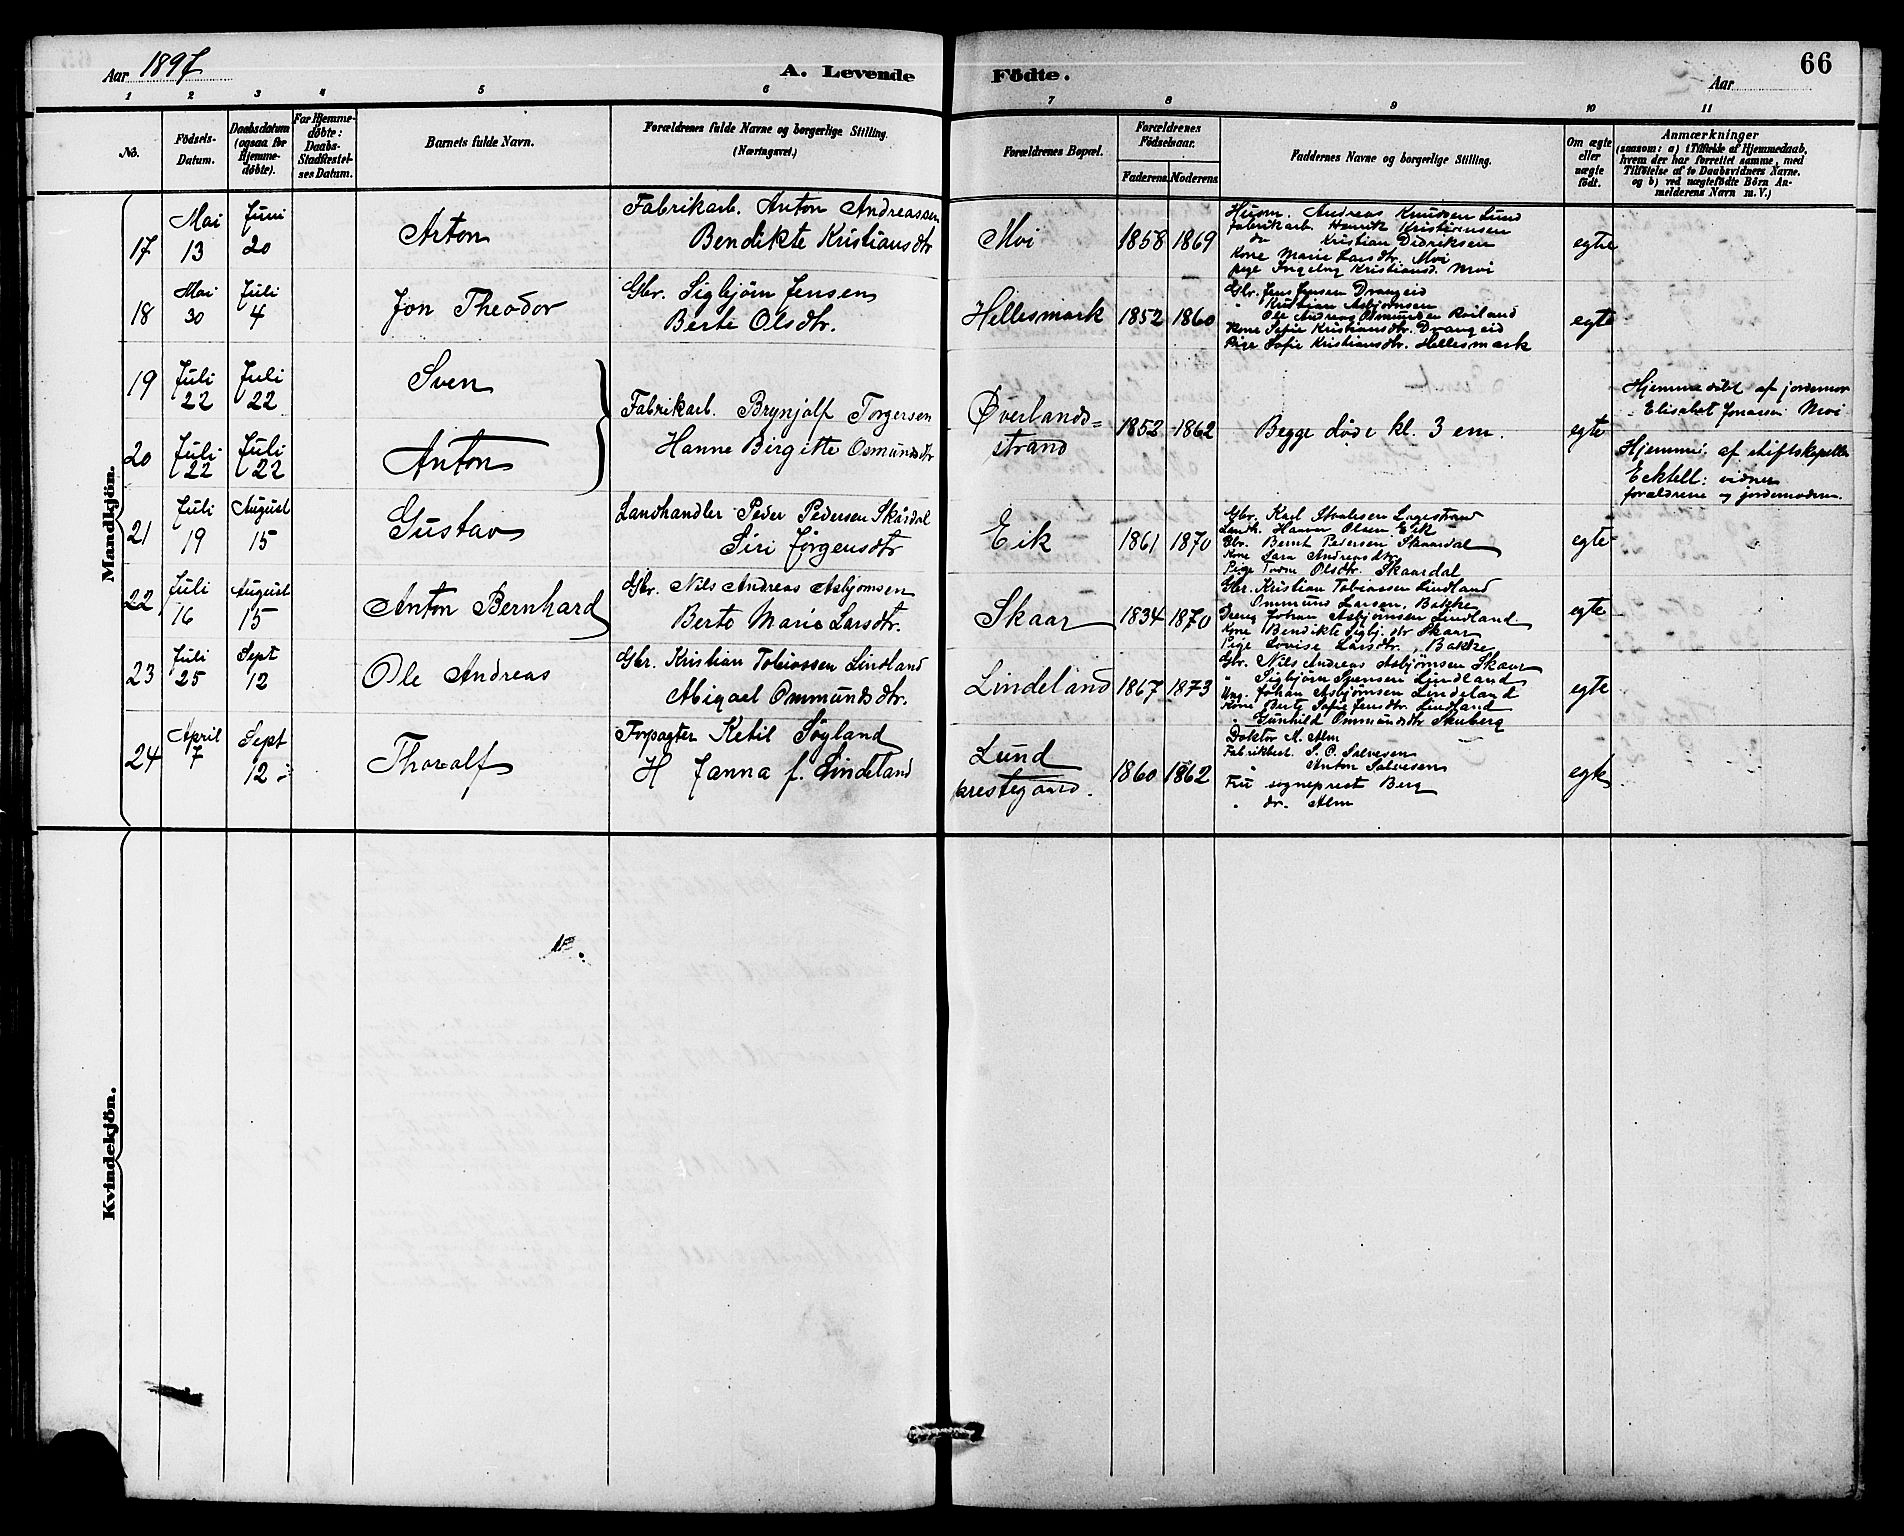 Aar 1897
A. Levende Födte.
Aar
66
1 2 3 4 5 6 7 8 9 10 11
No.
Födsels-Datum.
Daabsdatum (ogsaa for Hjemmedöbte).
For Hjemmedöbte: Daabs-Stadfæstelses Datum.
Barnets fulde Navn.
Forældrenes fulde Navne og borgerlige Stilling. (Næringsvei.)
Forældrenes Bopæl.
Forældrenes Födselsaar.
Faderens Moderens
Faddernes Navne og borgerlige Stilling.
Om ægte eller uægte födt.
Anmærkninger
(saasom: a) i Tilfælde af Hjemmedaab,
hvem der har forrettet samme, med
Tilföielse af to Daabsvidners Navne.
og b) ved uægtefödte Börn An-
melderens Navn m. V.)
Mandkjön.
17 Mai 13 Juni 20 Anton
Fabrikarb. Anton Andreassen
Bendikte Kristiansdtr
Moi 1858 1869
Husm. Andreas Knudsen Lund
Fabrikarb. Henrik Kristensen
do Kristian Didriksen
Kone Marie Larsdtr. Moi
pige Ingeborg Kristiansd. Moi
egte
18 Mai 30 Juli 4 Jon Theodor
Gbr. Sigbjørn Jensen
Berte Olsdtr.
Hellesmark 1852 1860
Gbr. Jens Jensen Drangeid
" Kristian Asbjørnsen
Ole Andreas Osmundsen Røiland
Kone Sofie Kristiansdtr. Drangeid
Pige Sofie Kristiansdtr. Hellesmark
egte
19 Juli 22 Juli 22 Sven
20 Juli 22 Juli 22 Anton
Fabrikarb. Brynjolf Torgersen
Hanne Birgitte Osmundsdtr
Øverlands=
strand
1852 1862
Begge døde kl. 3 em.
egte
Hjemmedøbt af jordemor
Elisabet Jonassen Moi
Hjemmed. af stiftskapellan
Ecktell: vidner
forældrene og jordemoderen.
21 Juli 19 August 15 Gustav
Landhandler Peder Pedersen Skårdal
Siri Jørgensdtr
Eik 1861 1870
Gbr. Karl
Landh. Hanver Olsen Eik
Gbr. Bernt Pedersen Skaardal
Kone Sara Andreasdtr
Pige Olsdtr. Skaardal
egte
22 Juli 16 August 15 Anton Bernhard
Gbr. Nils Andreas Asbjørnsen
Berte Marie Larsdtr.
Skaar 1834 1870
Gbr. Kristian Tobiassen Lindland
Ommund Larsen, Bakke
Dreng Johan Asbjørnsen Lindland
Kone Bendikte Sigbj. dtr Skaar
Pige Lovise Larsdtr., Bakke
egte
23 Juli 25 Sept 12 Ole Andreas
Gbr. Kristian Tobiassen Lindland
Abigael Ommundsdtr.
Lindeland 1867 1873
Gbr. Nils Andreas Asbjørnsen Skaar
" Sigbjørn Spensen Lindland
Ung. Johan Asbjørnsen Lindeland
Kone Berte Sofie Jensdtr. Lindland
" Gunhild Ommundsdtr Skuberg
egte
24 April 7 Sept 12 Thoralf
Forpagter Ketil Søyland
H Janna f. Lindeland
Lund
prestegaard.
1860 1862
Doktor A. Alm
Fabrikbest. S. O. Salvesen
" Anton Salvesen
Fru sogneprest Berg
" dr. Alm
egte
Kvindekjön.